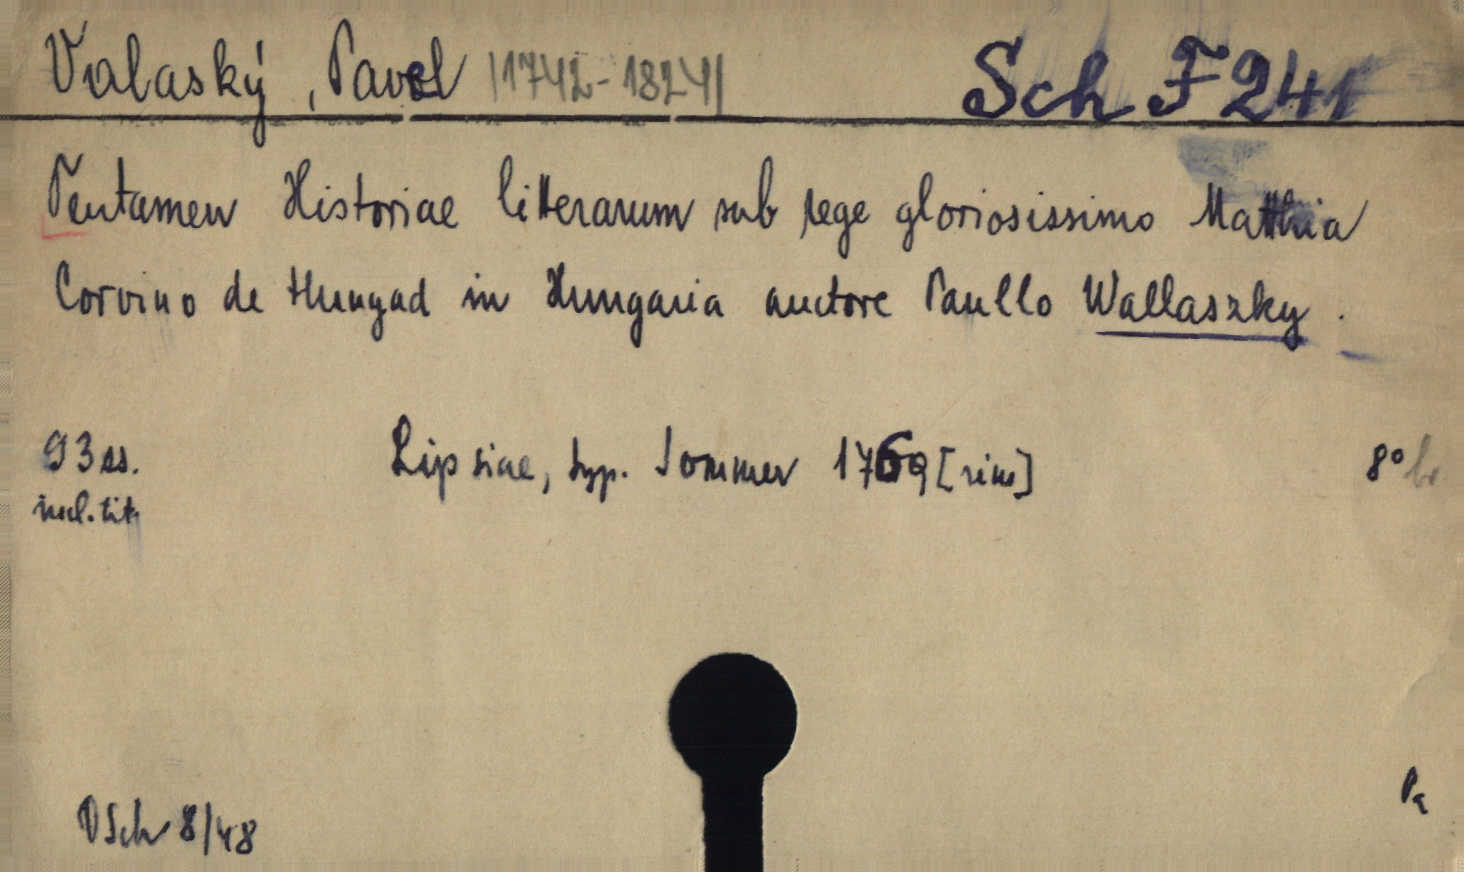 Valaský, Pavel |1742-1824| Sch F 241
Tentamen Historiae litterarum sub rege gloriosissimo Matthia
Corvino de Hunyad in Hungaria auctore Paullo Wallaszky.
93 ss. Lipsiae, typ. Sommer 1769 [rím] 8° br.
incl. tit.
DSch 8/48